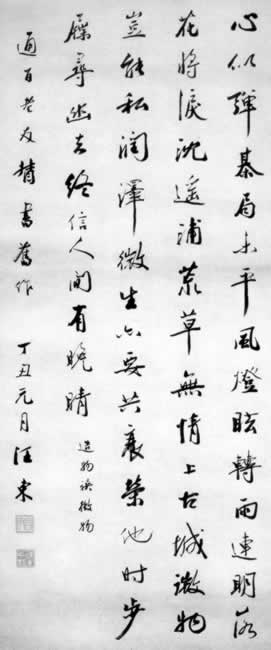 心似彈棊局未平風燈眩轉雨連明落
花將淚沈遥浦荒草無情上古城微物
豈能私潤澤微生亦要共衰榮他时步
屧尋幽去終信人間有晚晴 造物誤微物
百老友書舊作 丁丑元月汪東